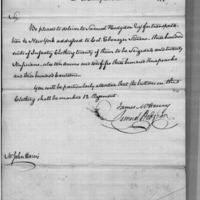 Sir
We please to deliver to Samuel Hodgdon Esq for transportation
to New York addressed to Col. Ebenezer Stevens. Three hundred
suits of Infantry Clothing twenty of them to be Sergeants and twenty
Musicians, also ten drums and ten fifes three hundred knapsacks
and three hundred canteens.
You will be particularly attentive that the buttons on this
Clothing shall be number 12 Regiment.
James McHenry
Mr John Harris